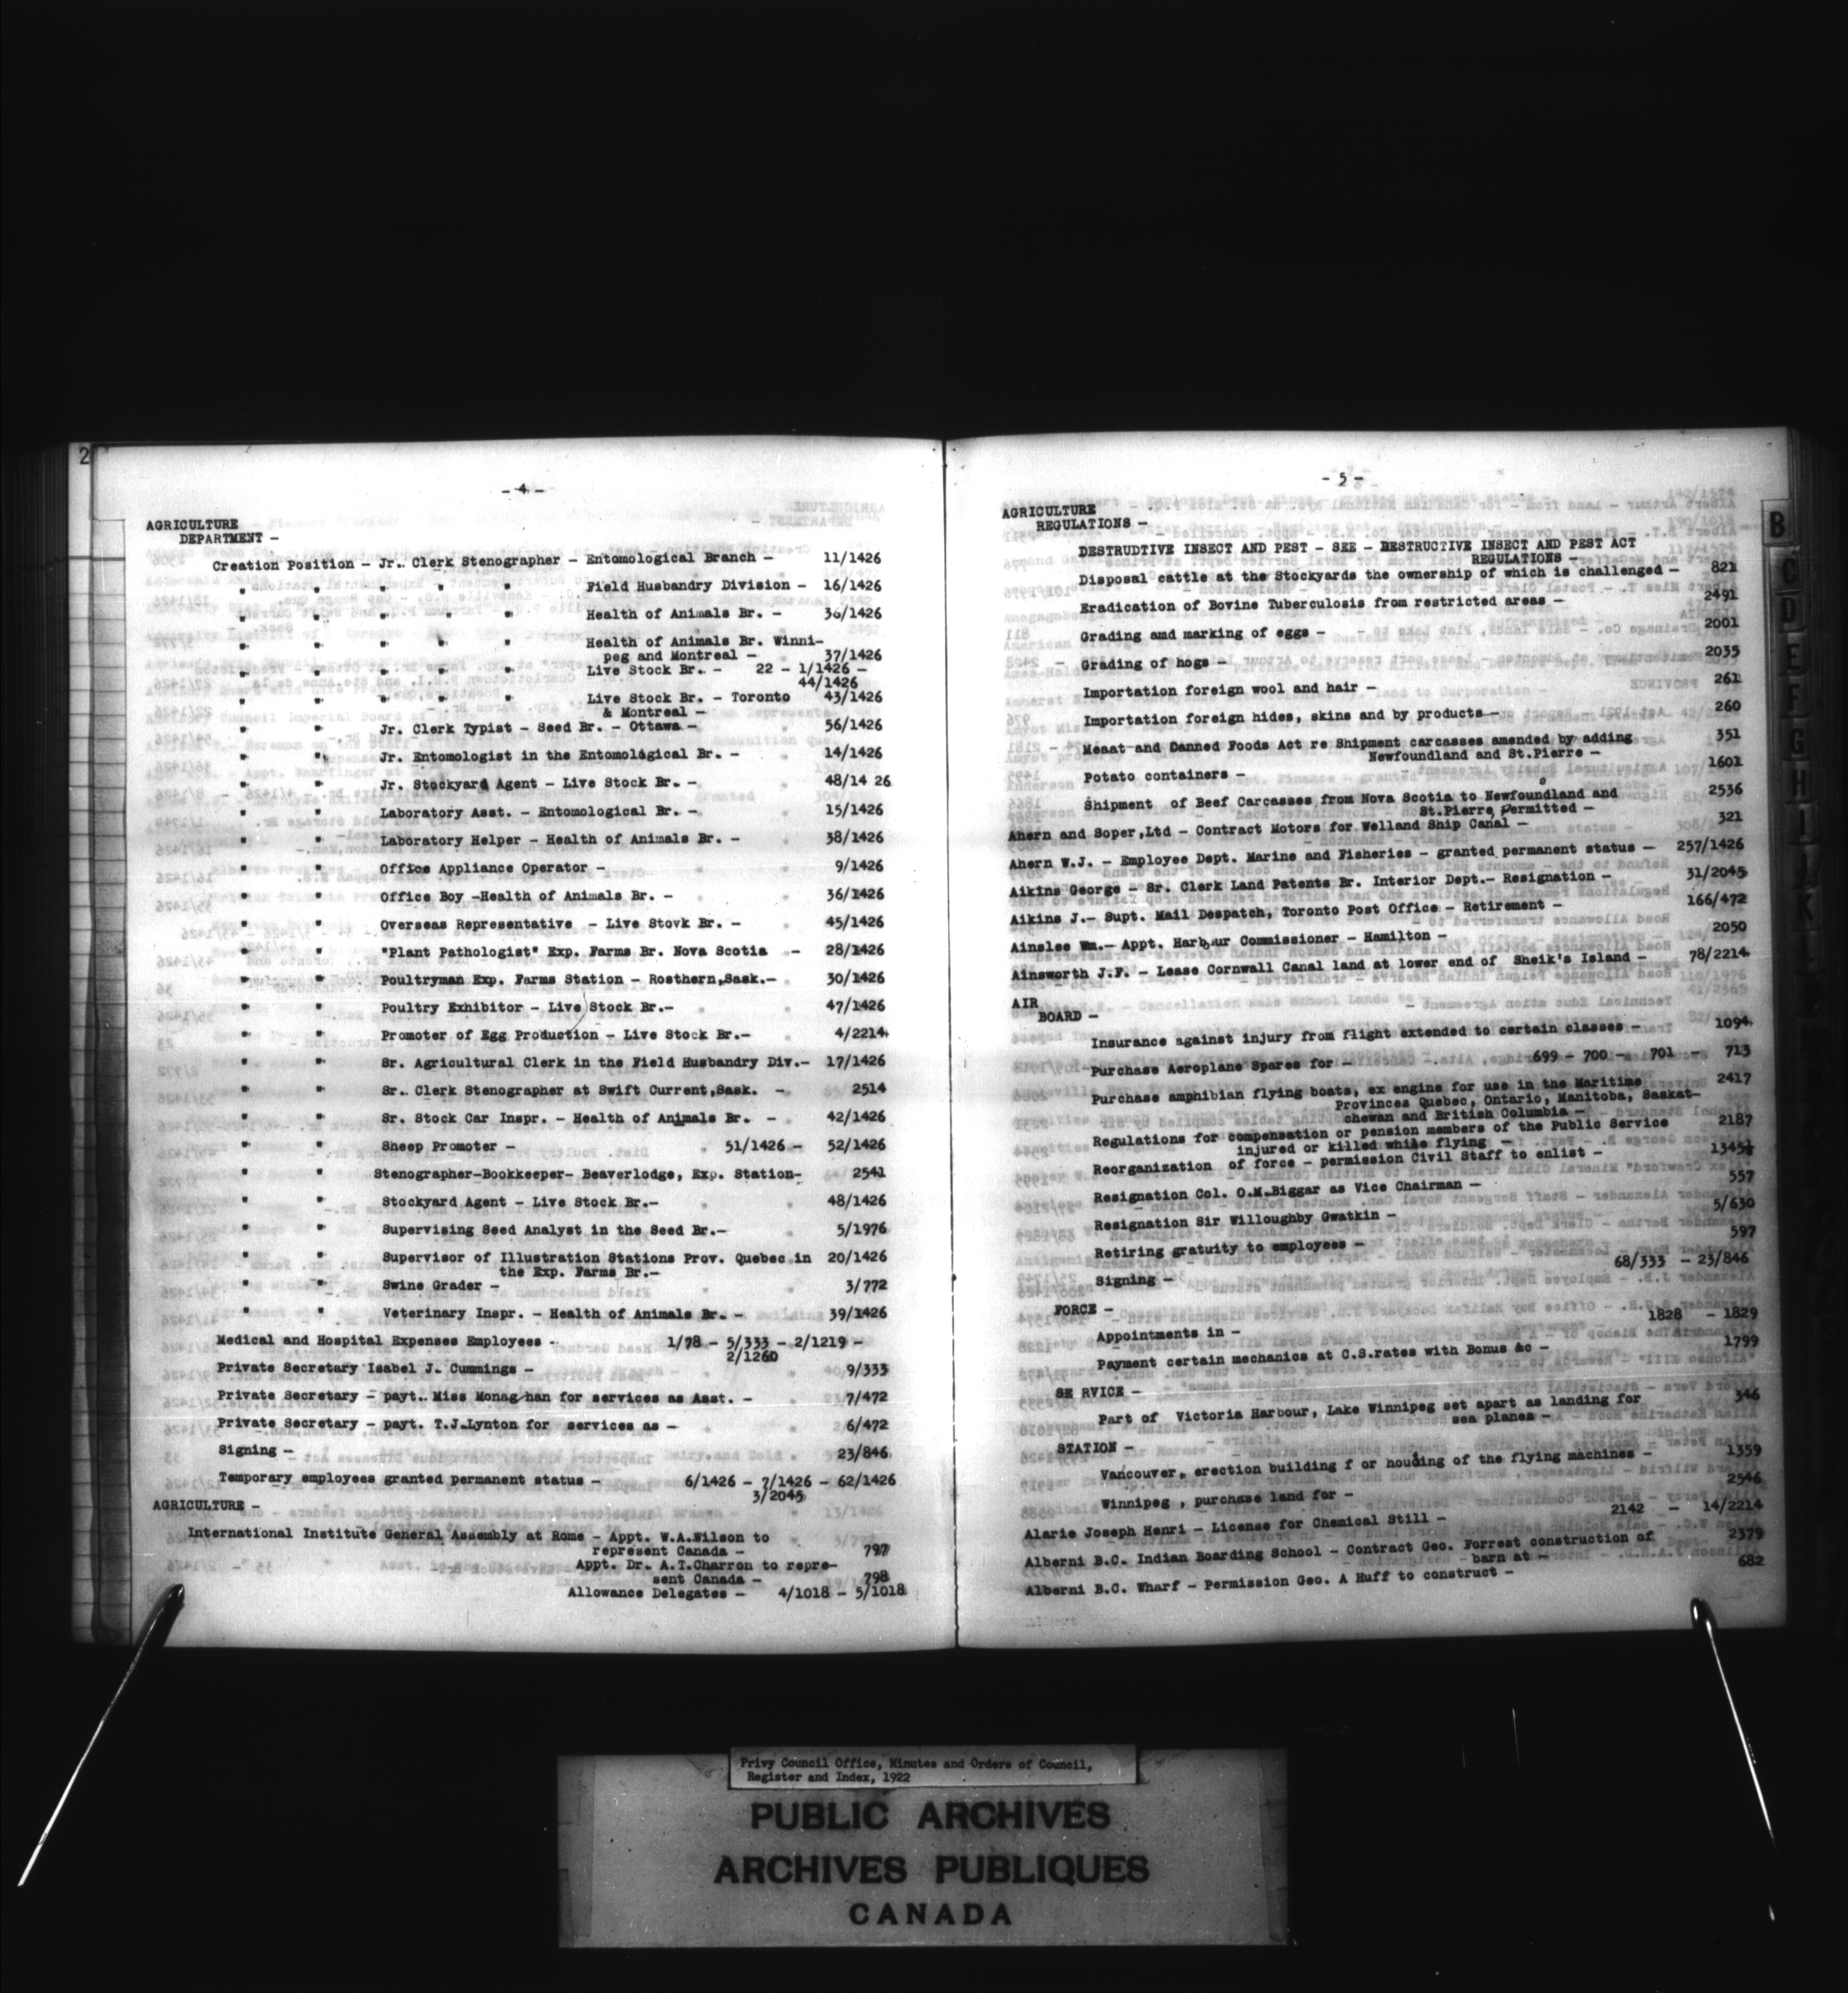 2
- 4 -
AGRICULTURE
DEPARTMENT -
Creation Position - Jr. Clerk Stenographer - Entomological Branch - 11/1426
" " " " " Field Husbandry Division - 16/1426
" " " " " Health of Animals Br. - 36/1426
" " " " " Health of Animals Br. Winni-
peg and Montreal - 37/1426
" " " " " Live Stock Br. - 22 - 1/1426 -
44/1426
" " " " " Live Stock Br. - Toronto 43/1426
& Montreal -
" " Jr. Clerk Typist - Seed Br. - Ottawa - 56/1426
" " Jr. Entomologist in the Entomological Br. - 14/1426
" " Jr. Stockyard Agent - Live Stock Br. - 48/14 26
" " Laboratory Asst. - Entomological Br. - 15/1426
" " Laboratory Helper - Health of Animals Br. - 38/1426
" " Office Appliance Operator - 9/1426
" " Office Boy -Health of Animals Br. - 36/1426
" " Overseas Representative - Live Stovk Br. - 45/1426
" " "Plant Pathologist" Exp. Farms Br. Nova Scotia - 28/1426
" " Poultryman Exp. Farms Station - Rosthern,Sask.- 30/1426
" " Poultry Exhibitor - Live Stock Br.- 47/1426
" " Promoter of Egg Production - Live Stock Br.- 4/2214
" " Sr. Agricultural Clerk in the Field Husbandry Div.- 17/1426
" " Sr. Clerk Stenographer at Swift Current,Sask. - 2514
" " Sr. Stock Car Inspr. - Health of Animals Br. - 42/1426
" " Sheep Promoter - 51/1426 - 52/1426
" " Stenographer-Bookkeeper- Beaverlodge, Exp. Station- 2541
" " Stockyard Agent - Live Stock Br.- 48/1426
" " Supervising Seed Analyst in the Seed Br.- 5/1976
" " Supervisor of Illustration Stations Prov. Quebec in 20/1426
the Exp. Farms Br.-
" " Swine Grader - 3/772
" " Veterinary Inspr. - Health of Animals Br. - 39/1426
Medical and Hospital Expenses Employees - 1/78 - 5/333 - 2/1219 -
2/1260
Private Secretary Isabel J. Cummings - 9/333
Private Secretary - payt. Miss Monaghan for services as Asst. - 7/472
Private Secretary - payt. T.J.Lynton for services as - 6/472
Signing - 23/846
Temporary employees granted permanent status - 6/1426 - 7/1426 - 62/1426
3/2045
AGRICULTURE -
International Institute General Assembly at Rome - Appt. W.A.Wilson to
represent Canada - 797
Appt. Dr. A.T.Charron to repre-
sent Canada - 798
Allowance Delegates - 4/1018 - 5/1018
- 5 -
AGRICULTURE
REGULATIONS -
DESTRUDTIVE INSECT AND PEST - SEE - DESTRUCTIVE INSECT AND PEST ACT
REGULATIONS -
Disposal cattle at the Stockyards the ownership of which is challenged - 821
Eradication of Bovine Tuberculosis from restricted areas - 2491
Grading amd marking of eggs - 2001
Grading of hogs - 2035
Importation foreign wool and hair - 261
Importation foreign hides, skins and by products - 260
Meaat and Canned Foods Act re Shipment carcasses amended by adding 351
Newfoundland and St.Pierre -
Potato containers - 1601
Shipment of Beef Carcasses from Nova Scotia to Newfoundland and 2536
St.Pierre, Permitted -
Ahern and Soper,Ltd - Contract Motors for Welland Ship Canal - 321
Ahern W.J. - Employee Dept. Marine and Fisheries - granted permanent status - 257/1426
Aikins George - Sr. Clerk Land Patents Br. Interior Dept.- Resignation - 31/2045
Aikins J.- Supt. Mail Despatch, Toronto Post Office - Retirement - 166/472
Ainslee Wm.- Appt. Harbour Commissioner - Hamilton - 2050
Ainsworth J.F. - Lease Cornwall Canal land at lower end of Sheik's Island - 78/2214
AIR
BOARD -
Insurance against injury from flight extended to certain classes - 1094
Purchase Aeroplane Spares for - 699 - 700 - 701 - 713
Purchase amphibian flying boats, ex engine for use in the Maritime 2417
Provinces Quebec, Ontario, Manitoba, Saskat-
chewan and British Columbia -
Regulations for compensation or pension members of the Public Service 2187
injured or killed while flying -
Reorganization of force - permission Civil Staff to enlist - 1345½
Resignation Col. O.M.Biggar as Vice Chairman - 557
Resignation Sir Willoughby Gwatkin - 5/630
Retiring gratuity to employees - 597
Signing - 68/333 - 23/846
FORCE -
Appointments in - 1828 - 1829
Payment certain mechanics at C.S.rates with Bonus &c - 1799
SE RVICE -
Part of Victoria Harbour, Lake Winnipeg set apart as landing for 346
sea planes -
STATION -
Vancouver, erection building f or housing of the flying machines - 1359
Winnipeg , purchase land for - 2546
Alarie Joseph Henri - License for Chemical Still - 2142 - 14/2214
Alberni B.C. Indian Boarding School - Contract Geo. Forrest construction of 2379
barn at -
Alberni B.C. Wharf - Permission Geo. A Huff to construct - 682
B
C
D
E
F
G
H
I
K
Privy Council Office, Minutes and Orders of Council,
Register and Index, 1922
PUBLIC ARCHIVES
ARCHIVES PUBLIQUES
CANADA